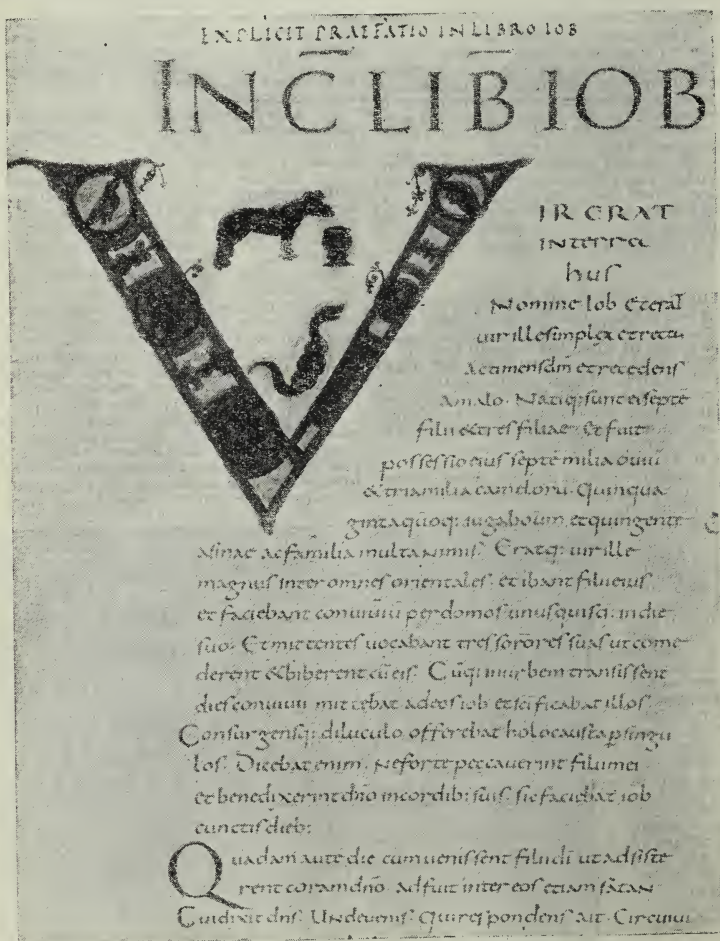 EXPLICIT PRAEFATIO IN LIBRO IOB
INC̄ LIB̄ IOB
VIR ERAT
IN TERRA
hus
Nomine Iob & erat̄
uir ille simplex et rectu
Ac timens dm̄ et recedens
A malo. Natiq; sunt ei septē
filii & tres filiae. Et fuit
possessio eius septē milia ouiū
& tria milia camelorū. Quinqua
ginta quoq; iuga boum et quingente
asinae ac familia multa nimis. Eratq; uir ille
magnus inter omnes orientales. et ibant filii eius
et faciebant conuiuiū per domos unusquisq; in die
suo. Et mittentes uocabant tres sorores suas ut come
derent & biberent cū eis. Cūq; in urbem transissent
dies conuiuii mittebat ad eos iob et sc̄ificabat illos.
Consurgensq; diluculo offerebat holocausta p singu
los. Dicebat enim. Ne forte peccauerint filii mei
et benedixerint dn̄o in cordib; suis. sic faciebat iob
cunctis dieb;
Quadam autē die cum uenissent filii dī ut adsiste
rent coram dn̄o. adfuit inter eos etiam satan
Cui dixit dn̄s. Unde uenis? Qui respondens ait. Circuiui